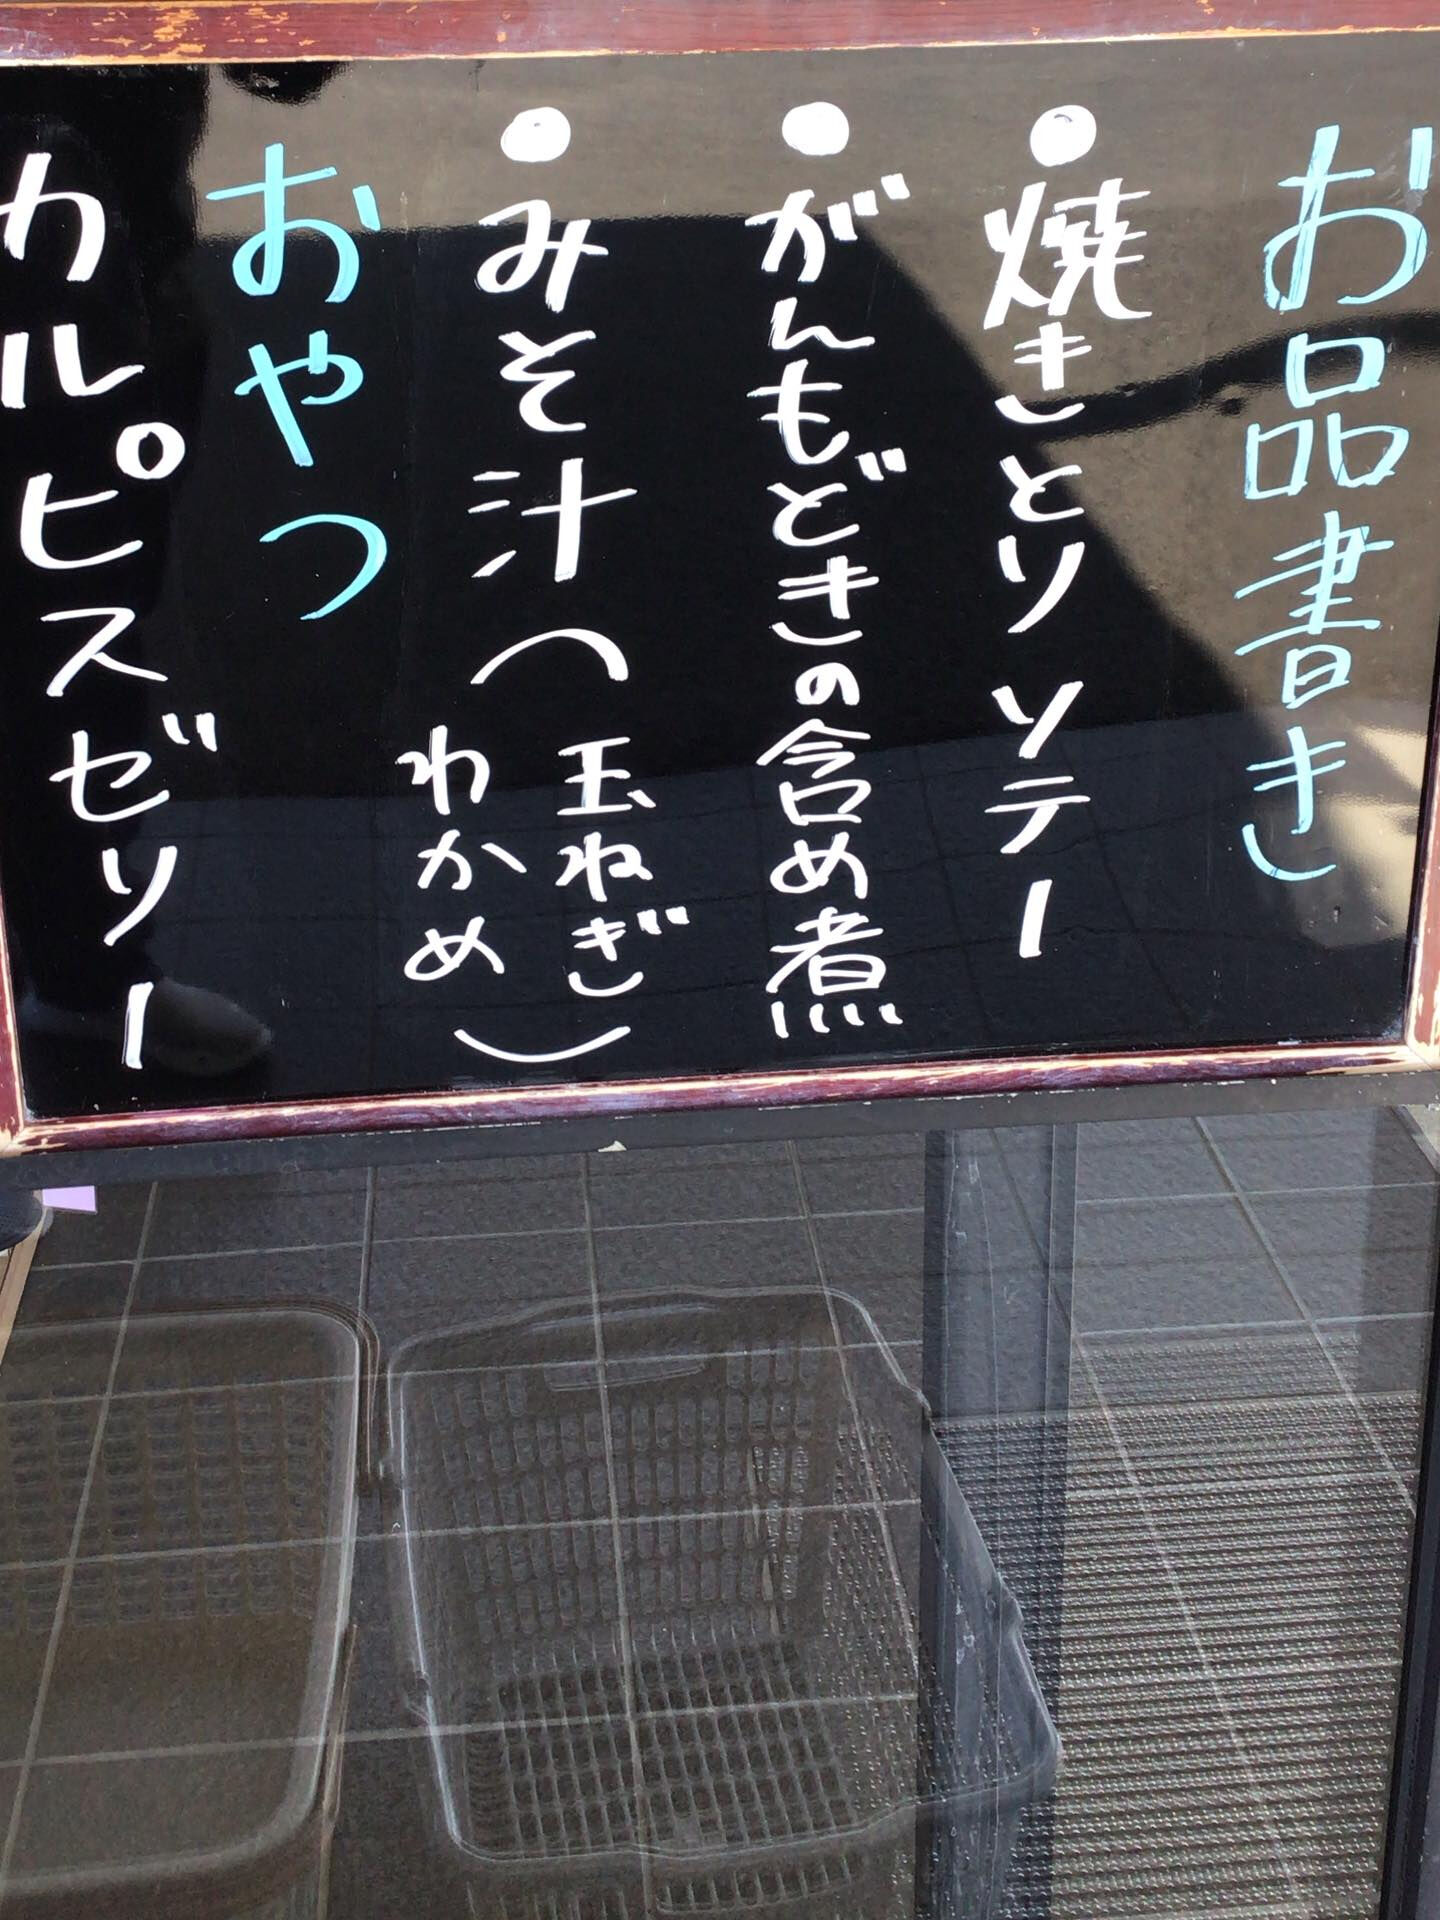 お品書き
●焼きとりソテー
●がんもどきの含め煮
●みそ汁(玉ねぎ
わかめ)
おやつ
カルピスゼリー